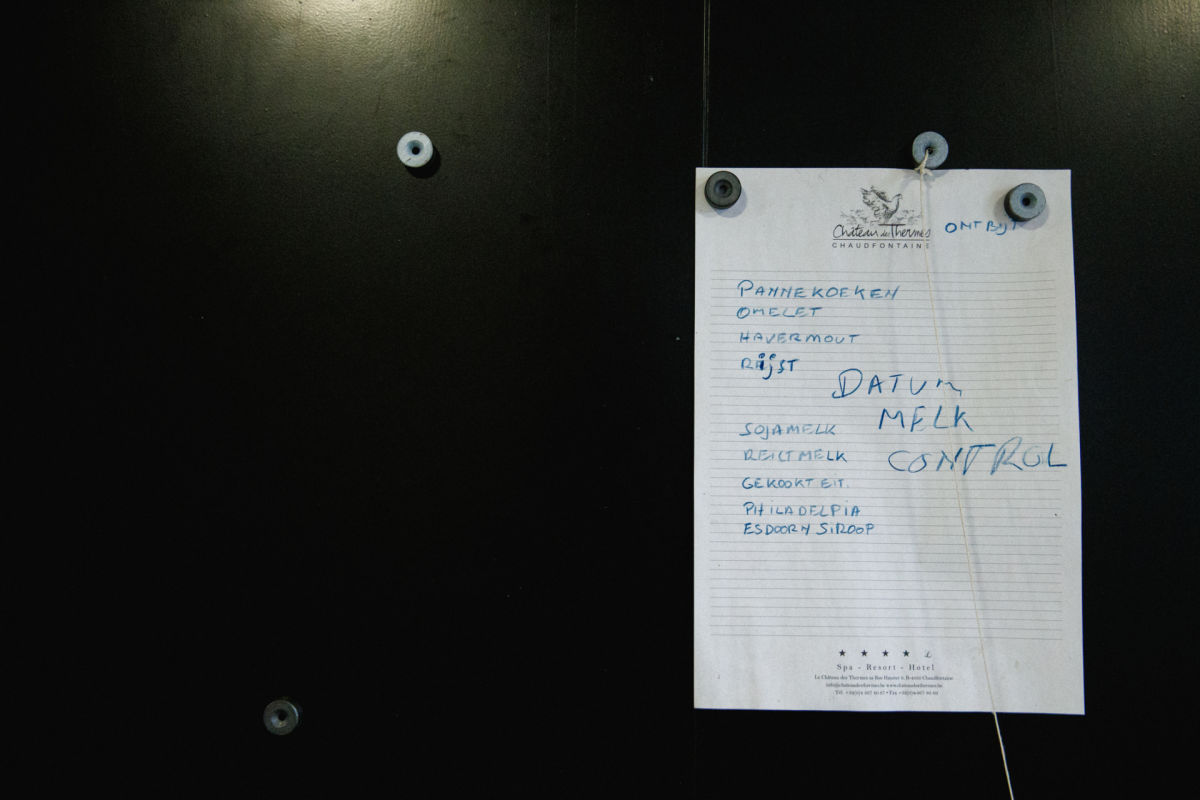 Château des Thermes
CHAUDFONTAINE
ONTBIJT
PANNEKOEKEN
OMELET
HAVERMOUT
RijST
DATUM
MELK
CONTROL
SOJAMELK
REICTMELK
GEKOOKT EIT.
PHILADELPIA
ESDOORN SIROOP
★ ★ ★ ★ L
Spa - Resort - Hotel